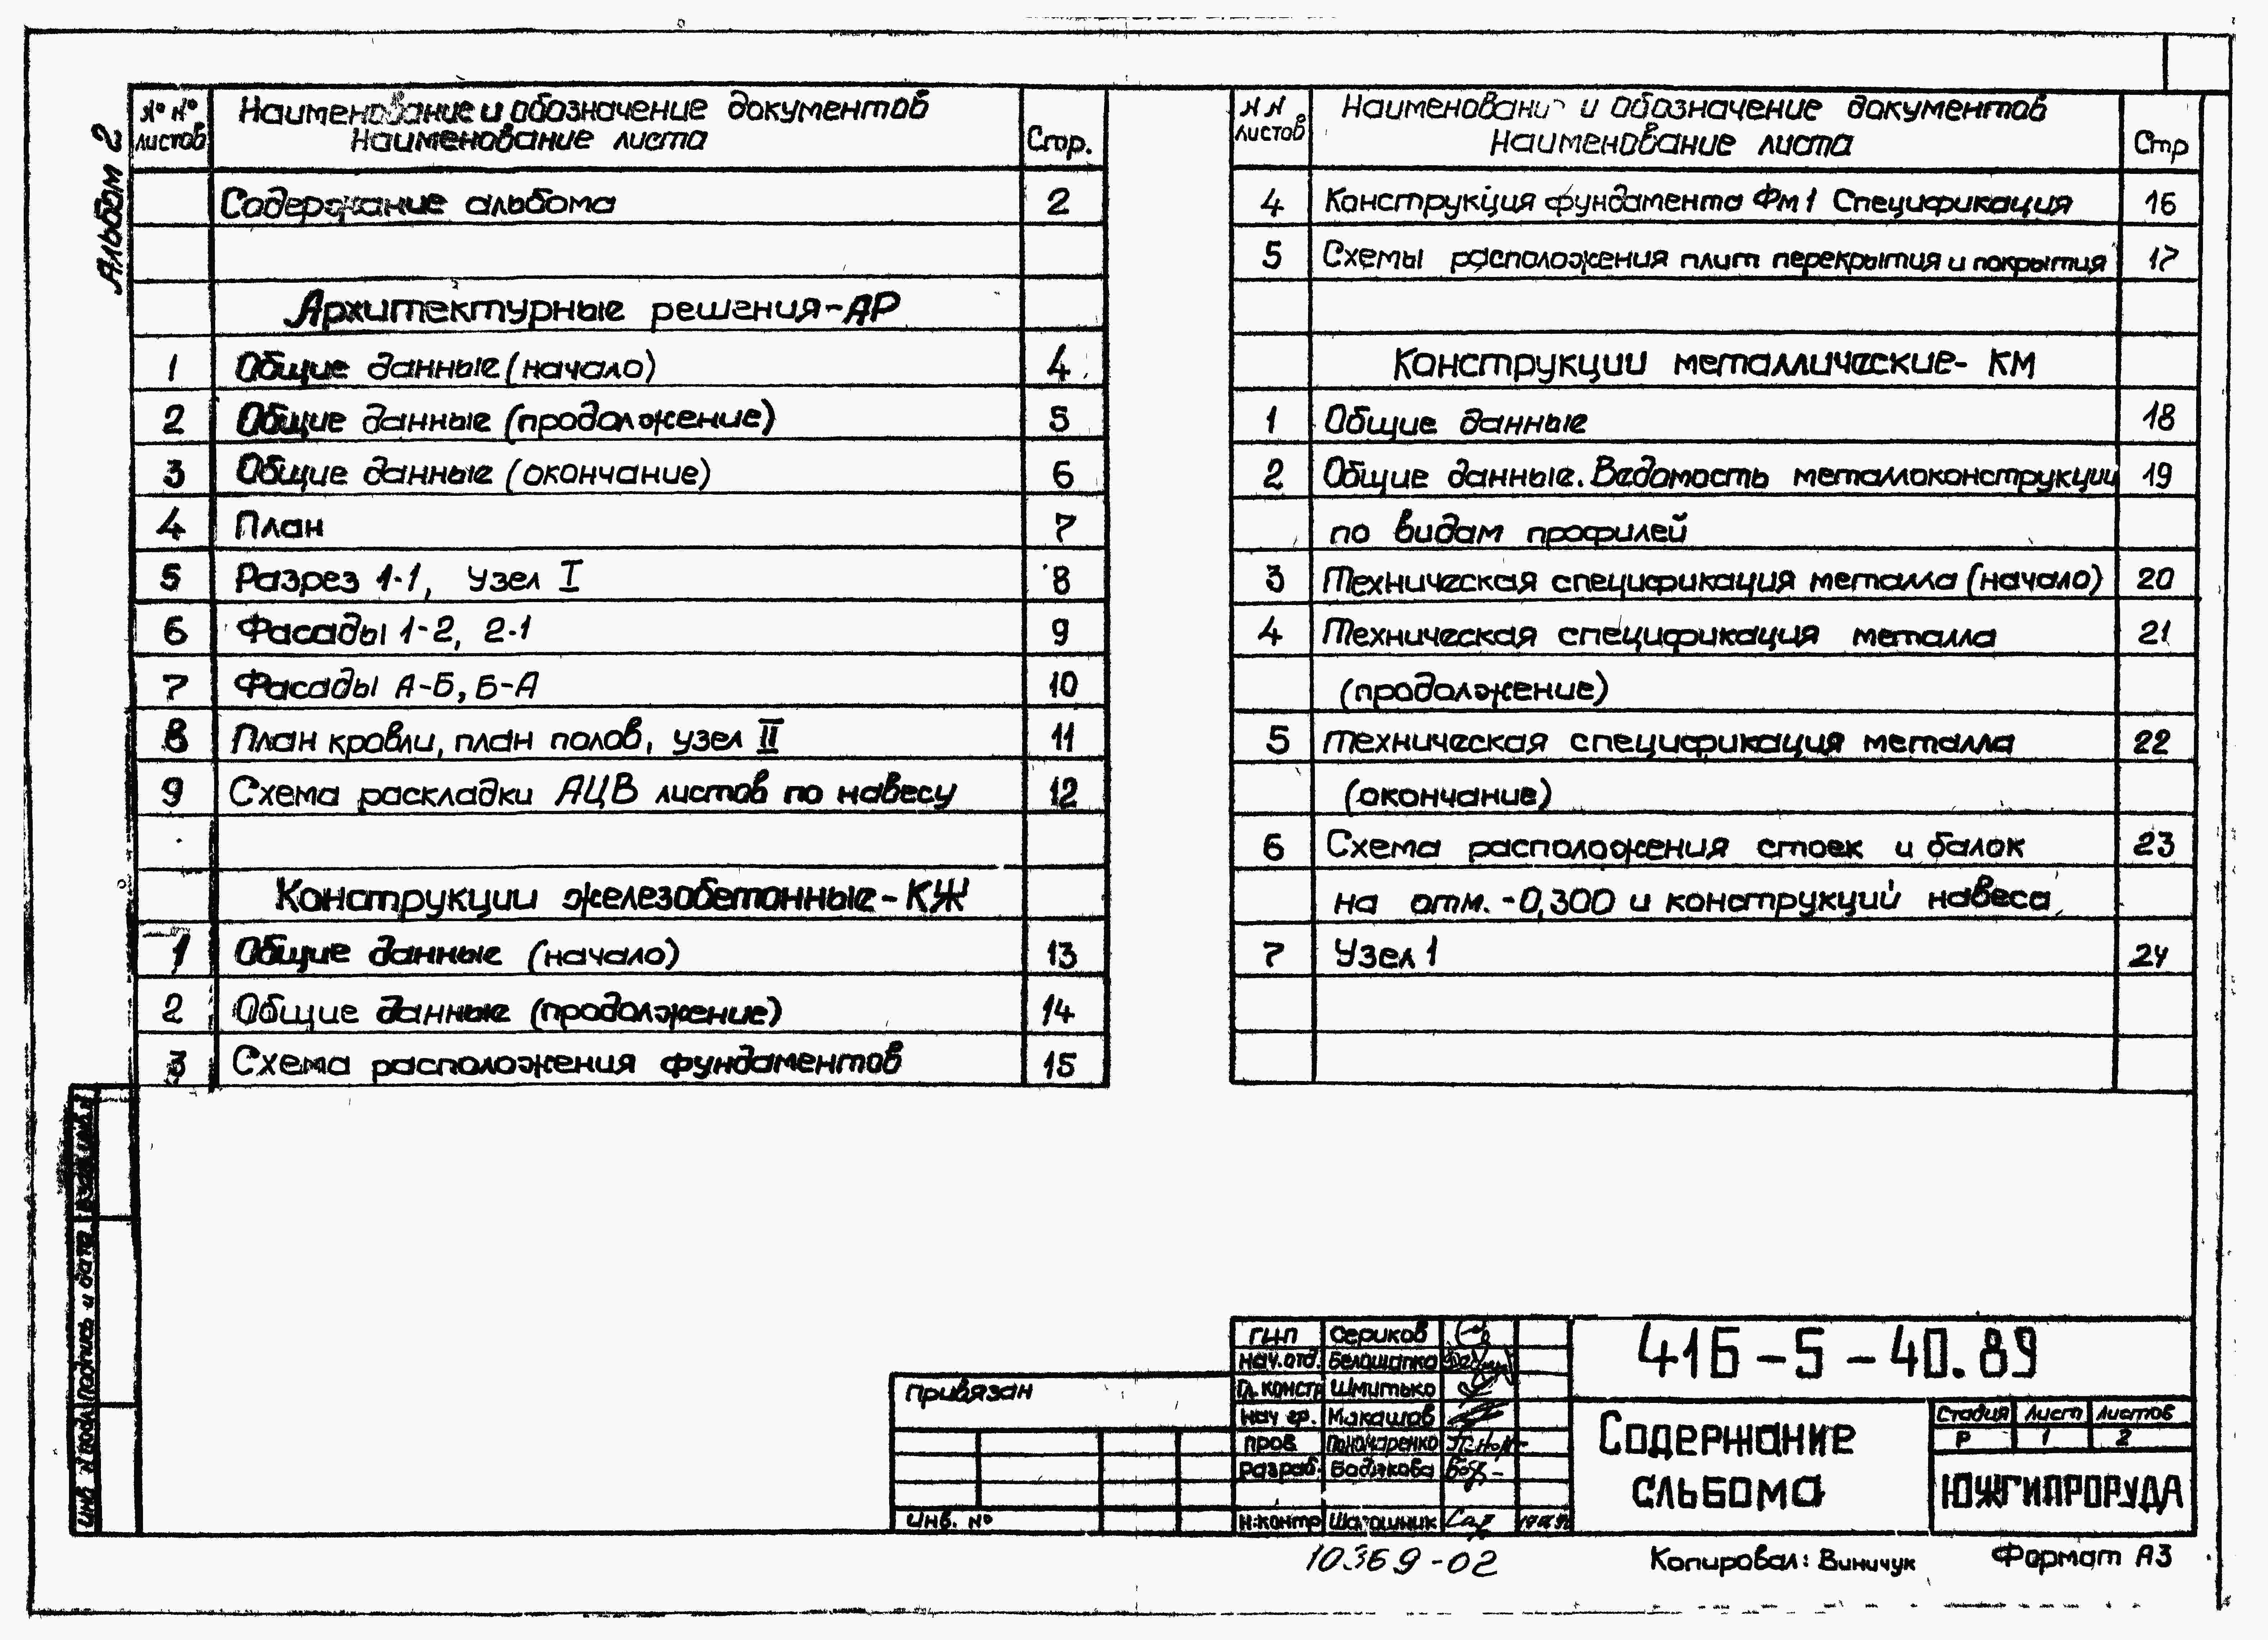 Альбом 2
№ № листов
Наименование и обозначение документов
Наименование листа
Стр.
Содержание альбома 2
Архитектурные решения-АР
1 Общие данные (начало) 4
2 Общие данные (продолжение) 5
3 Общие данные (окончание) 6
4 План 7
5 Разрез 1-1, Узел I 8
6 Фасады 1-2, 2-1 9
7 Фасады А-Б, Б-А 10
8 План кровли, план полов, узел II 11
9 Схема раскладки АЦВ листов по навесу 12
Конструкции железобетонные-КЖ
1 Общие данные (начало) 13
2 Общие данные (продолжение) 14
3 Схема расположения фундаментов 15
N N листов
Наименовани и обозначение документов
Наименование листа
Стр
4 Конструкция фундамента Фм1 Спецификация 16
5 Схемы расположения плит перекрытия и покрытия 17
Конструкции металлические- КМ
1 Общие данные 18
2 Общие данные. Ведомость металлоконструкции 19
по видам профилей
3 Техническая спецификация металла (начало) 20
4 Техническая спецификация металла 21
(продолжение)
5 Техническая спецификация металла 22
(окончание)
6 Схема расположения стоек и балок 23
на отм. -0,300 и конструкций навеса
7 Узел 1 24
Инв N подл Подпись и дата Взам инв N
Привязан
Инв. №
ГИП Сериков
Нач.отд. Белошапка
Гл. констр Шмитько
Нач гр. Макашов
Пров Пономаренко
Разраб.
Н.контр
41Б-5-40.89
Содержание
альбома
Стадия Лист Листов
Р 1 2
ЮЖГИПРОРУДА
10369-02
Копировал: Виничук
Формат А3